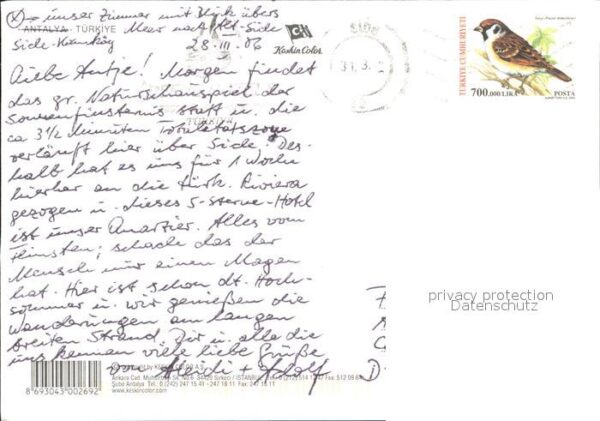 (X) = unser Zimmer mit Blick übers
ANTALYA - TÜRKİYE Meer nach Alt-Side
Side-Kumköy 28.III.06
Keskin Color
SIDE
31.3.
TÜRKİYE CUMHURİYETİ
700.000 LİRA POSTA
Liebe Antje! Morgen findet
das gr. Naturschauspiel der
Sonnenfinsternis statt u. die
ca 3 1/2 Minuten Totalitätszone
verläuft hier über Side. Des-
halb hat es uns für 1 Woche
hierher an die türk. Riviera
gezogen u. dieses 5-sterne-Hotel
ist unser Quartier. Alles vom
Feinsten; schade das der
Mensch nur einen Magen
hat. Hier ist schon dt. Hoch-
sommer u. wir genießen die
Wanderungen am langen
breiten Strand. Dir u. alle die
uns kennen viele liebe Grüße
von + Adolf
privacy protection
Datenschutz
8 693043 002692
Şube Antalya Tel: 0 (242) 247 15 41 - 247 16 11 Fax: 247 16 11
www.keskincolor.com